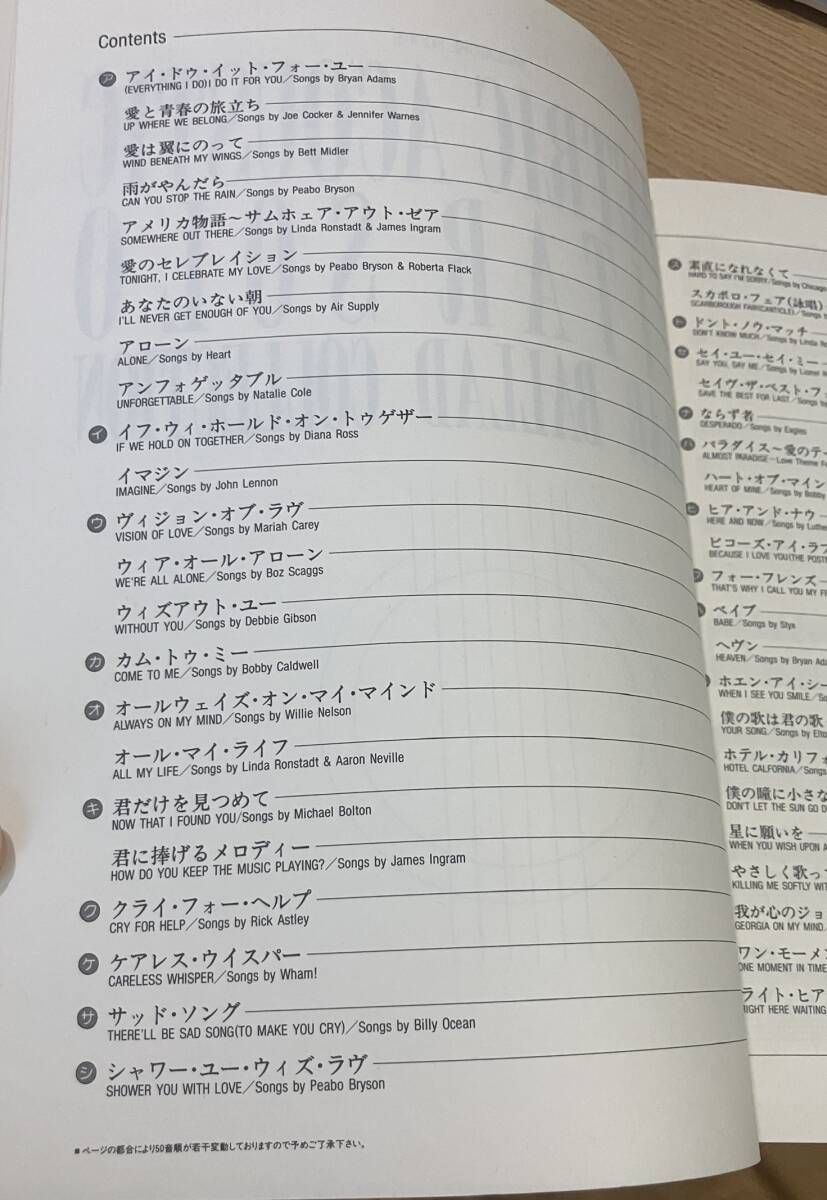 Contents
ア アイ・ドゥ・イット・フォー・ユー
(EVERYTHING I DO)I DO IT FOR YOU／Songs by Bryan Adams
愛と青春の旅立ち
UP WHERE WE BELONG／Songs by Joe Cocker & Jennifer Warnes
愛は翼にのって
WIND BENEATH MY WINGS／Songs by Bett Midler
雨がやんだら
CAN YOU STOP THE RAIN／Songs by Peabo Bryson
アメリカ物語～サムホェア・アウト・ゼア
SOMEWHERE OUT THERE／Songs by Linda Ronstadt & James Ingram
愛のセレブレイション
TONIGHT, I CELEBRATE MY LOVE／Songs by Peabo Bryson & Roberta Flack
あなたのいない朝
I'LL NEVER GET ENOUGH OF YOU／Songs by Air Supply
アローン
ALONE／Songs by Heart
アンフォゲッタブル
UNFORGETTABLE／Songs by Natalie Cole
イ イフ・ウィ・ホールド・オン・トゥゲザー
IF WE HOLD ON TOGETHER／Songs by Diana Ross
イマジン
IMAGINE／Songs by John Lennon
ウ ヴィジョン・オブ・ラヴ
VISION OF LOVE／Songs by Mariah Carey
ウィア・オール・アローン
WE'RE ALL ALONE／Songs by Boz Scaggs
ウィズアウト・ユー
WITHOUT YOU／Songs by Debbie Gibson
カ カム・トゥ・ミー
COME TO ME／Songs by Bobby Caldwell
オ オールウェイズ・オン・マイ・マインド
ALWAYS ON MY MIND／Songs by Willie Nelson
オール・マイ・ライフ
ALL MY LIFE／Songs by Linda Ronstadt & Aaron Neville
キ 君だけを見つめて
NOW THAT I FOUND YOU/Songs by Michael Bolton
君に捧げるメロディー
HOW DO YOU KEEP THE MUSIC PLAYING?／Songs by James Ingram
ク クライ・フォー・ヘルプ
CRY FOR HELP／Songs by Rick Astley
ケ ケアレス・ウイスパー
CARELESS WHISPER／Songs by Wham!
サ サッド・ソング
THERE'LL BE SAD SONG(TO MAKE YOU CRY)／Songs by Billy Ocean
シ シャワー・ユー・ウィズ・ラヴ
SHOWER YOU WITH LOVE／Songs by Peabo Bryson
■ページの都合により50音順が若干変動しておりますので予めご了承下さい。
ス 素直になれなくて
HARD TO SAY I'M SORRY／Songs by Chicago
スカボロ・フェア(詠唱)
SCARBOROUGH FAIR(CANTICLE)／Songs
ト ドント・ノウ・マッチ
DON'T KNOW MUCH／Songs by Linda
セ セイ・ユー・セイ・ミー
SAY YOU, SAY ME／Songs by Lionel
セイヴ・ザ・ベスト・フ
SAVE THE BEST FOR LAST／Songs
ナ ならず者
DESPERADO／Songs by Eagles
ハ パラダイス～愛のテー
ALMOST PARADISE～Love Theme
ハート・オブ・マイン
HEART OF MINE／Songs by Bobby
ヒ ヒア・アンド・ナウ
HERE AND NOW／Songs by Luthe
ビコーズ・アイ・ラブ
BECAUSE I LOVE YOU(THE POST
フ フォー・フレンズ
THAT'S WHY I CALL YOU MY F
ベイブ
BABE／Songs by Styx
ヘヴン
HEAVEN／Songs by Bryan Ada
ホエン・アイ・シー
WHEN I SEE YOU SMILE／So
僕の歌は君の歌
YOUR SONG／Songs by Elto
ホテル・カリフォ
HOTEL CALFORNIA／Songs
僕の瞳に小さな
DON'T LET THE SUN GO D
星に願いを
WHEN YOU WISH UPON A
やさしく歌っ
KILLING ME SOFTLY WIT
我が心のジョ
GEORGIA ON MY MIND
ワン・モーメン
ONE MOMENT IN TIME
ライト・ヒア
RIGHT HERE WAITING